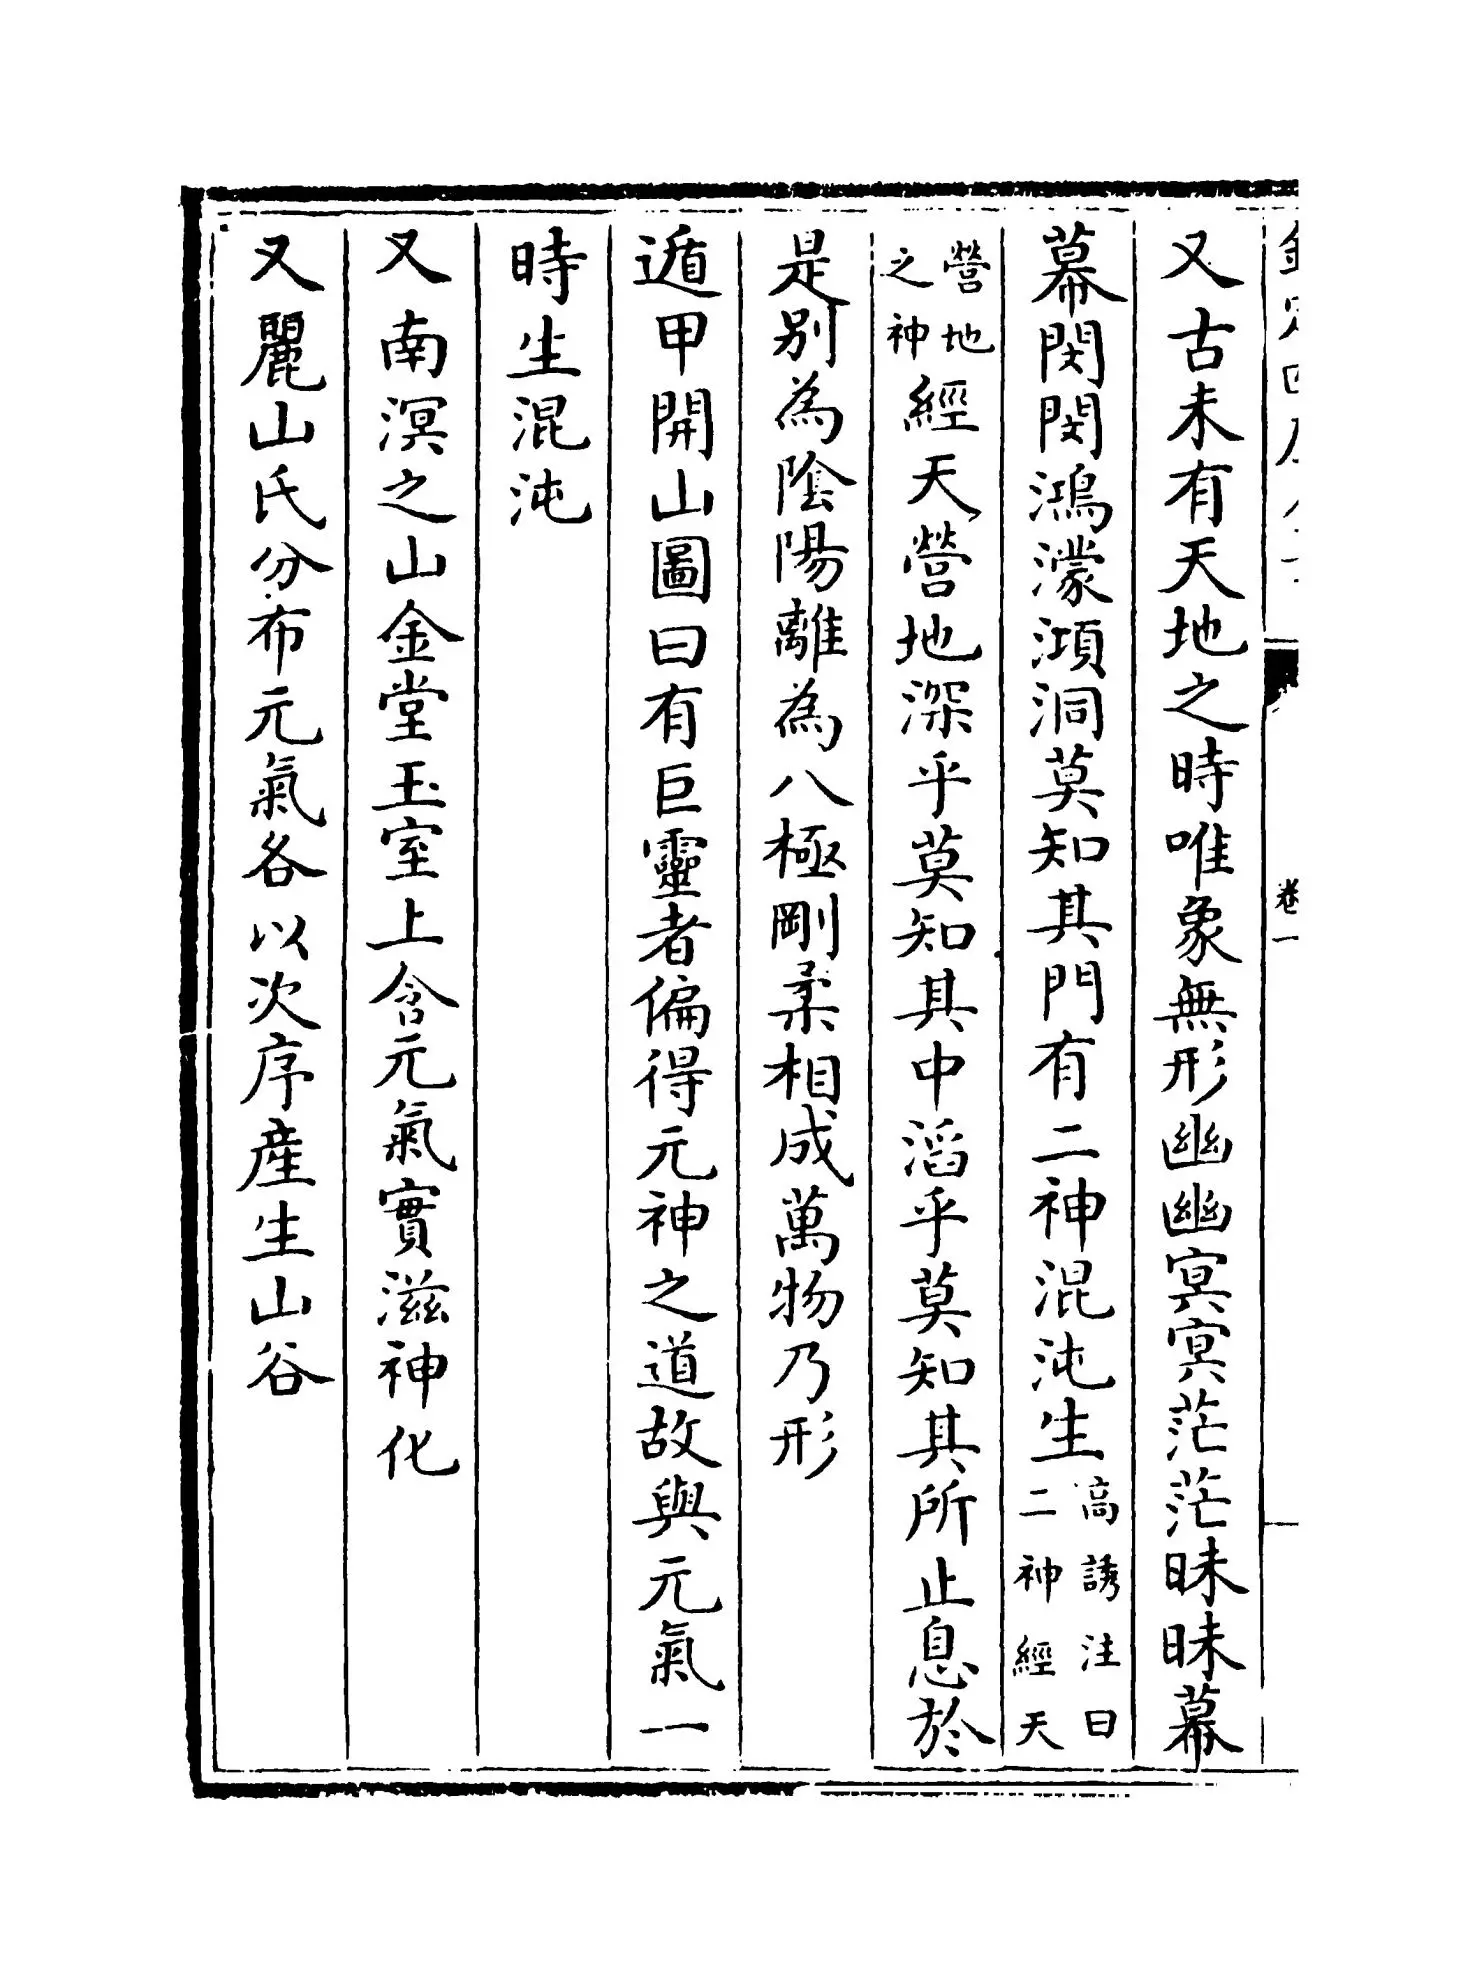 卷一
又古未有天地之時唯象無形幽幽冥冥茫茫昧昧幕
幕閔閔鴻濛澒洞莫知其門有二神混沌生高誘注曰二神經天
營地之神經天營地深乎莫知其中滔乎莫知其所止息於
是别為隂陽離為八極剛柔相成萬物乃形
遁甲開山圖曰有巨靈者偏得元神之道故與元氣一
時生混沌
又南溟之山金堂玉室上含元氣實滋神化
又麗山氏分布元氣各以次序產生山谷